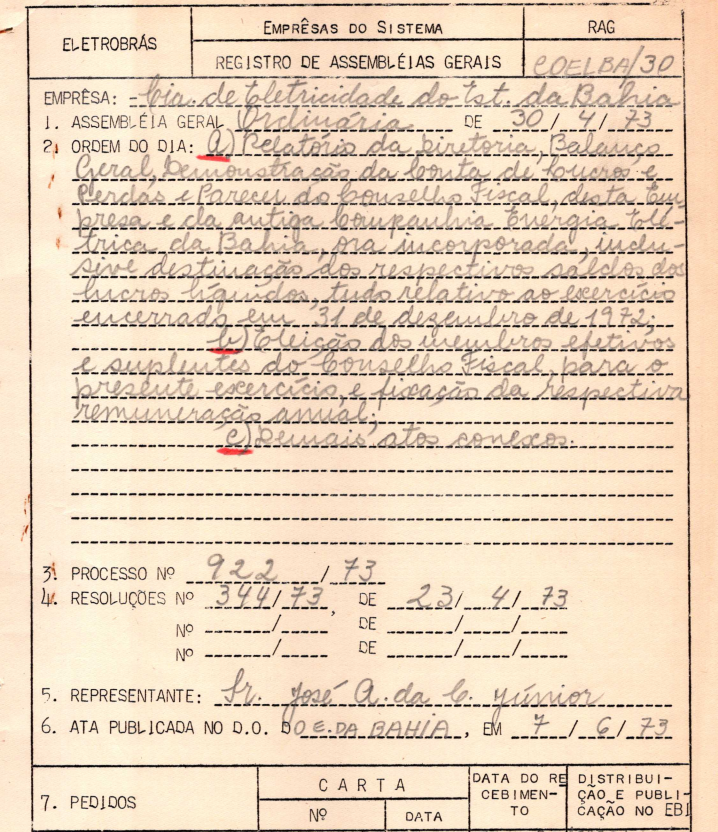 ELETROBRÁS
EMPRÊSAS DO SISTEMA
RAG
REGISTRO DE ASSEMBLÉIAS GERAIS
COELBA/30
EMPRÊSA: Cia. de Eletricidade do Est. da Bahia
1. ASSEMBLÉIA GERAL Ordinária DE 30/4/73
2. ORDEM DO DIA: a) Relatório da Diretoria, Balanço
Geral, Demonstração da Conta de Lucros e
Perdas e Parecer do Conselho Fiscal, desta Em
presa e da antiga Companhia Energia Elé-
trica da Bahia, ora incorporada, inclu-
sive destinação dos respectivos saldos dos
lucros líquidos, tudo relativo ao exercício
encerrado em 31 de dezembro de 1972;
b) Eleição dos membros efetivos
e suplentes do Conselho Fiscal, para o
presente exercício, e fixação da respectiva
remuneração anual;
c) Demais atos conexos.
3. PROCESSO Nº 922/73
4. RESOLUÇÕES Nº 344/73, DE 23/4/73
Nº / DE / /
Nº / DE / /
5. REPRESENTANTE: Sr. José A. da C. Júnior
6. ATA PUBLICADA NO D.O. DO E. DA BAHIA, EM 7/6/73
7. PEDIDOS
CARTA
Nº
DATA
DATA DO RE
CEBIMEN-
TO
DISTRIBUI-
ÇÃO E PUBLI-
CAÇÃO NO EBI